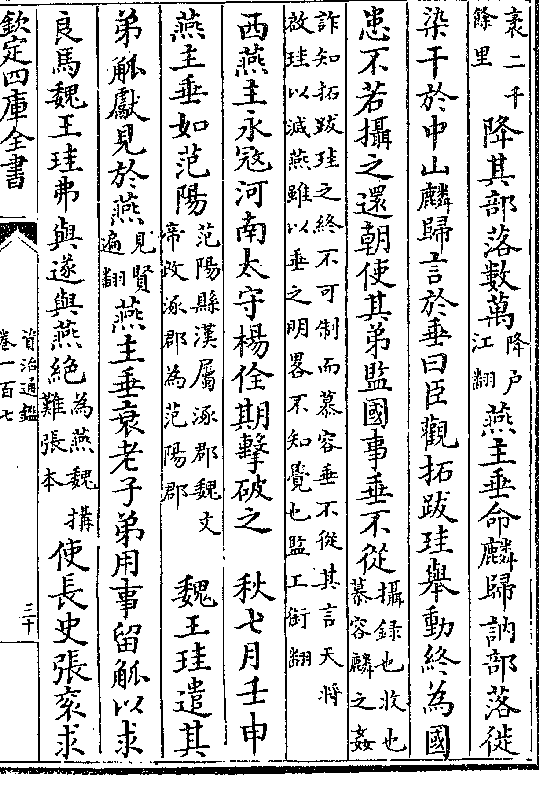 袤二千餘里降其部落數萬降户江翻燕主垂命麟歸訥部落徙
染干於中山麟歸言於垂曰臣觀拓跋珪舉動終為國
患不若攝之還朝使其弟監國事垂不從攝録也收也慕容麟之姦
詐知拓跋珪之終不可制而慕容垂不從其言天將啟珪以滅燕雖以垂之明畧不知覺也監工銜翻
西燕主永寇河南太守楊佺期擊破之 秋七月壬申
燕主垂如范陽范陽縣漢屬涿郡魏文帝改涿郡為范陽郡 魏王珪遣其
弟觚獻見於燕見賢遍翻燕主垂衰老子弟用事留觚以求
良馬魏王珪弗與遂與燕絶為燕魏搆難張本使長史張衮求
欽定四庫全書
資治通鑑
卷一百七
三十